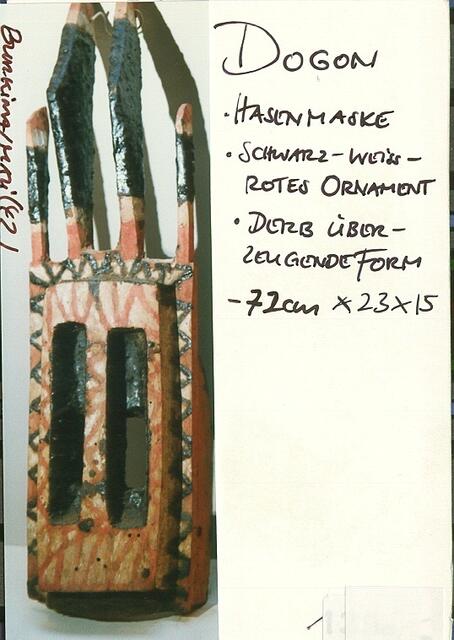 DOGON
• HASENMASKE
• SCHWARZ-WEISS-
ROTES ORNAMENT
• DERB ÜBER-
ZEUGENDE FORM
- 72cm x 23 x 15